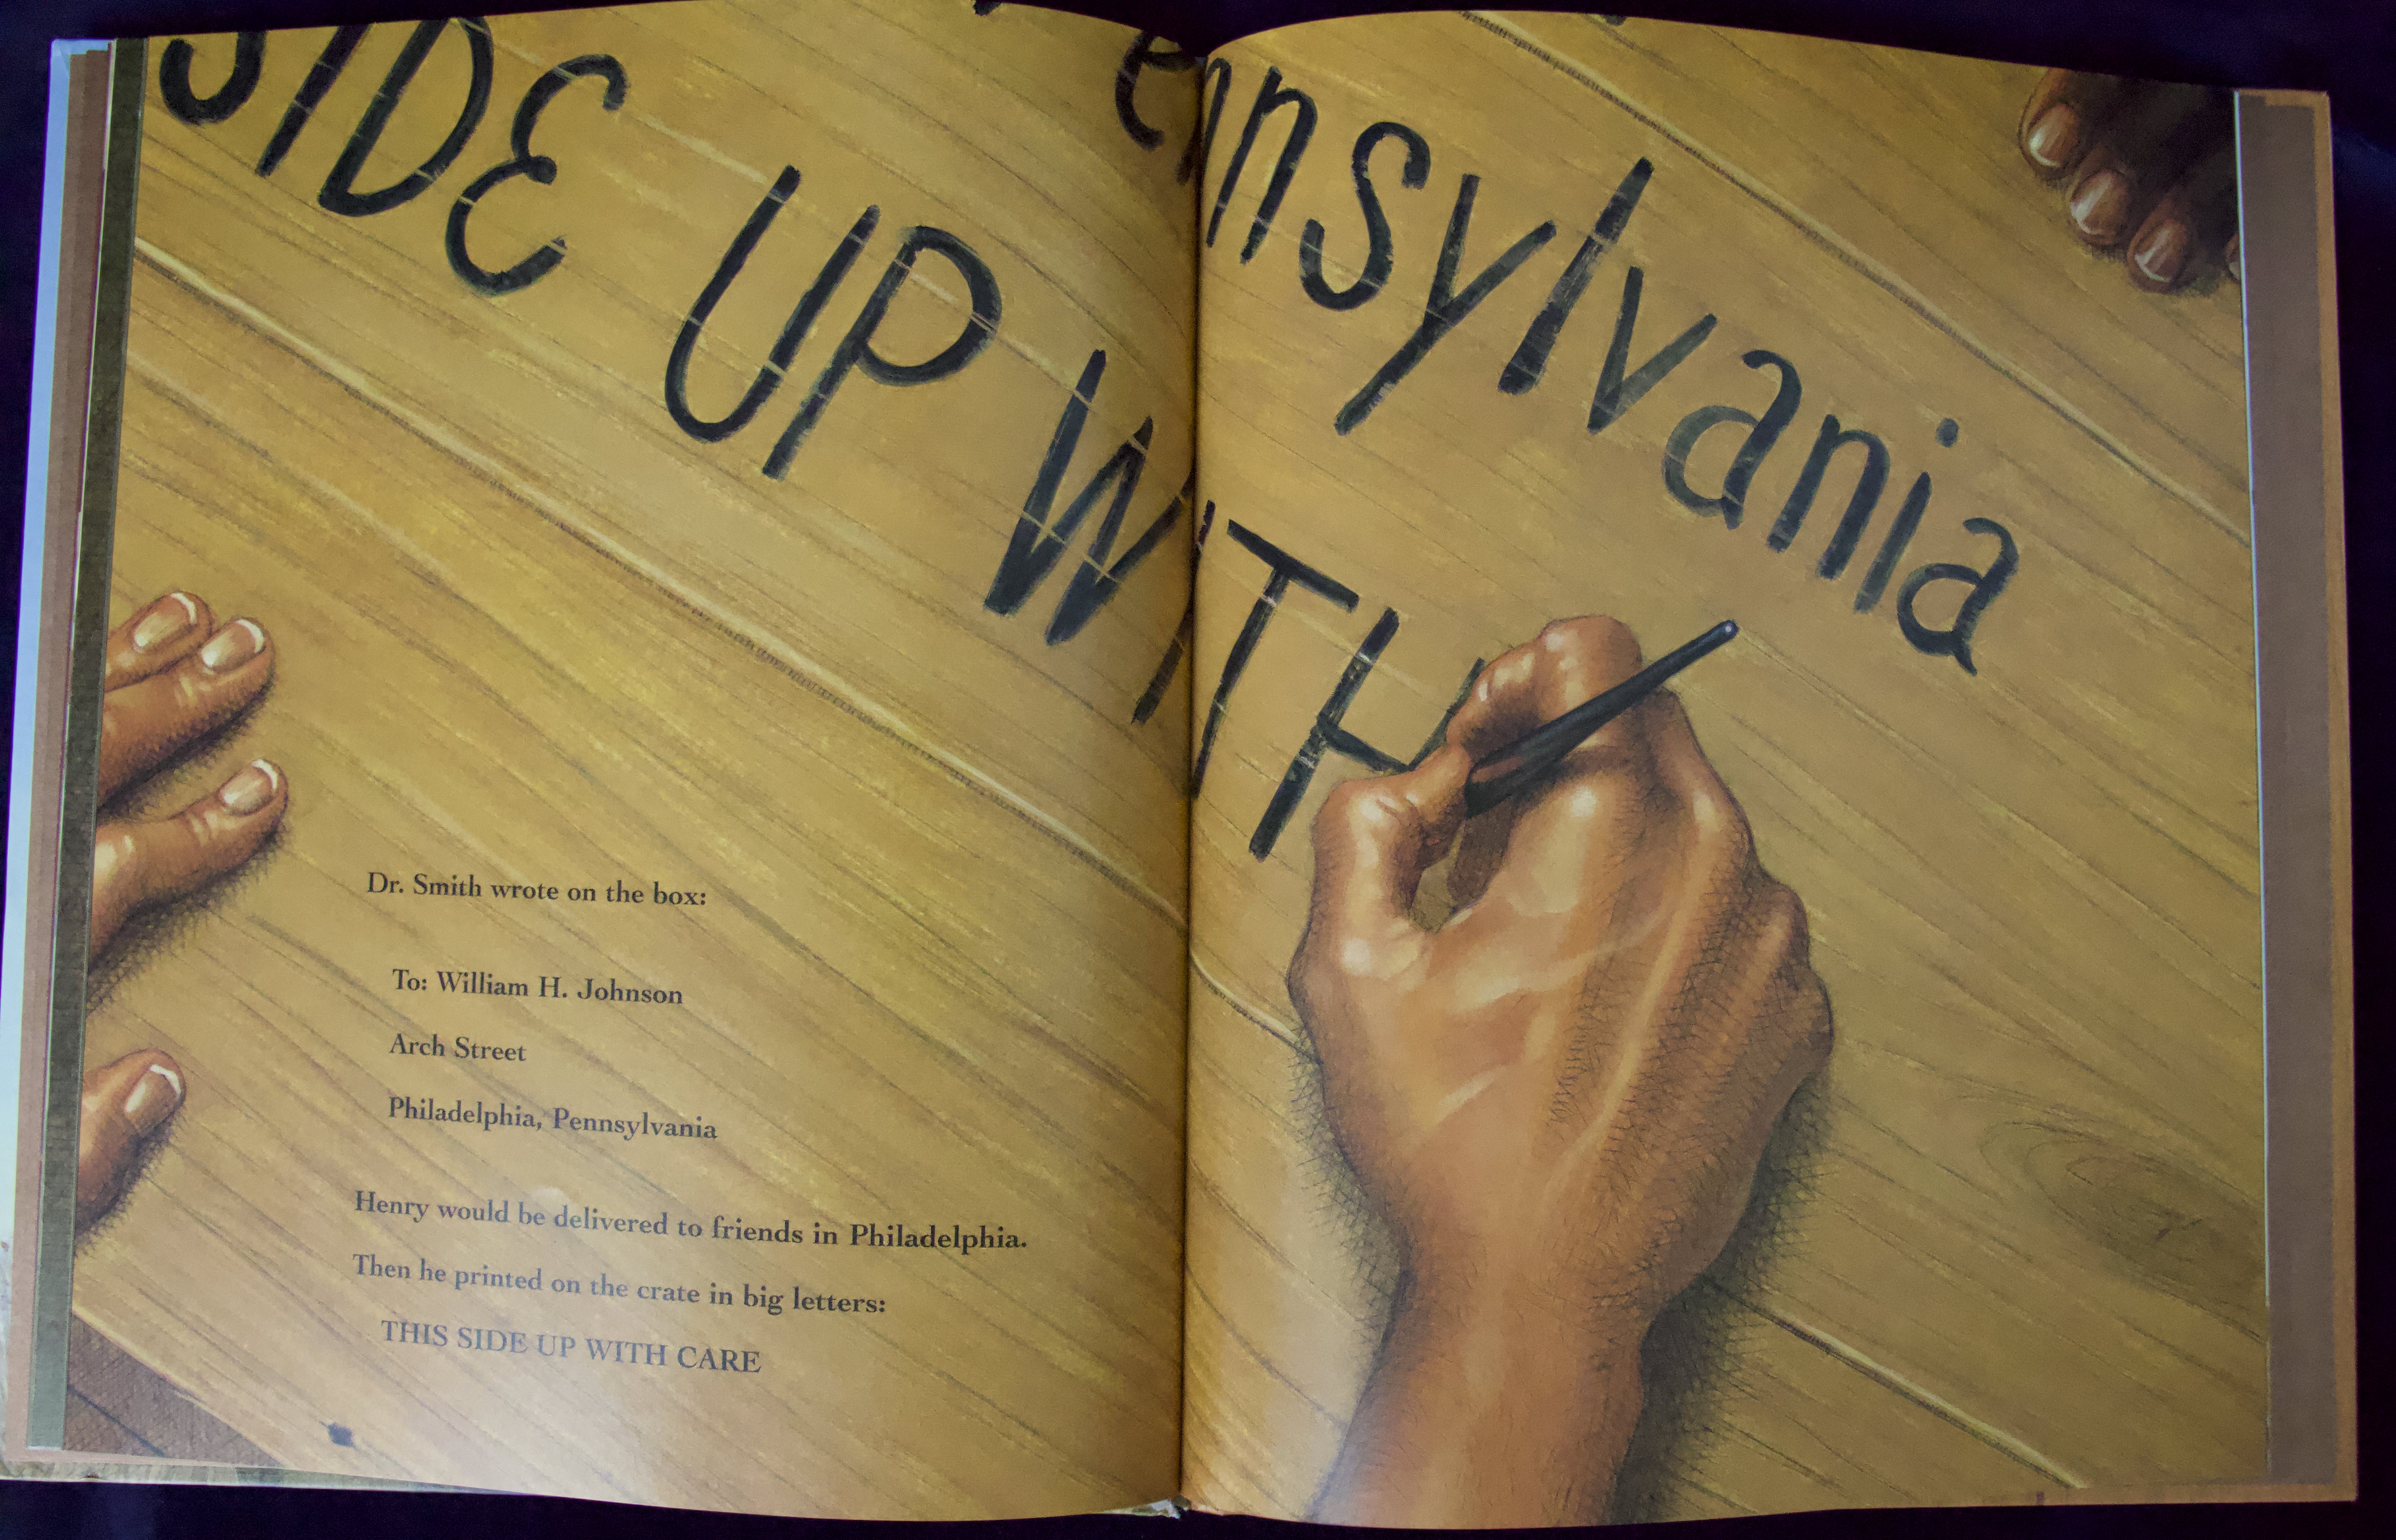 SIDE UP WITH
ennsylvania
Dr. Smith wrote on the box:
To: William H. Johnson
Arch Street
Philadelphia, Pennsylvania
Henry would be delivered to friends in Philadelphia.
Then he printed on the crate in big letters:
THIS SIDE UP WITH CARE